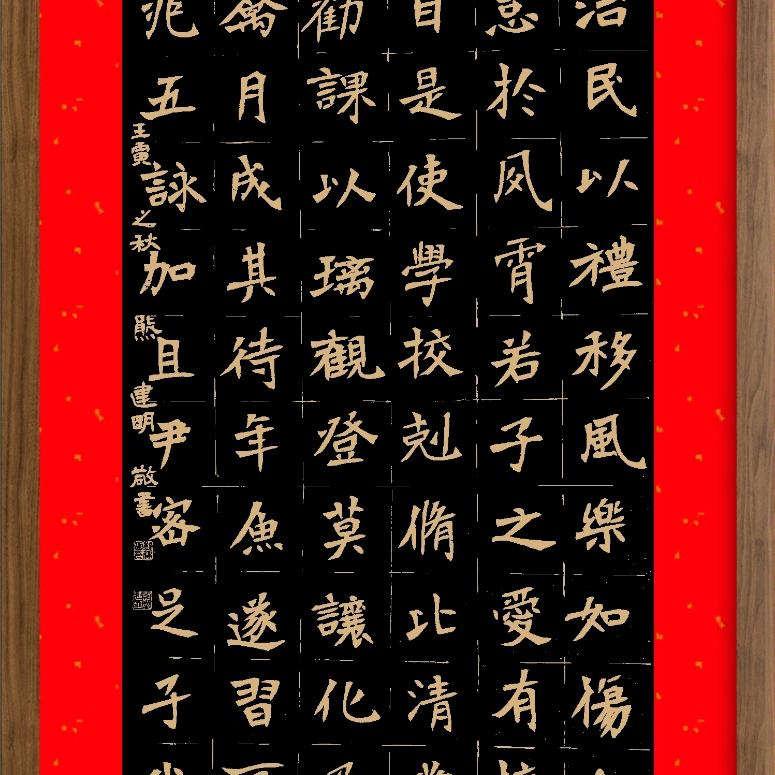 治民以禮移風樂如傷
怠於夙霄若子之愛有
目是使學校剋脩比清
勸課以璃觀登莫讓化
禽月成其待年魚遂習
兆五詠加且尹密足子
壬寅之秋 熊建明敬書